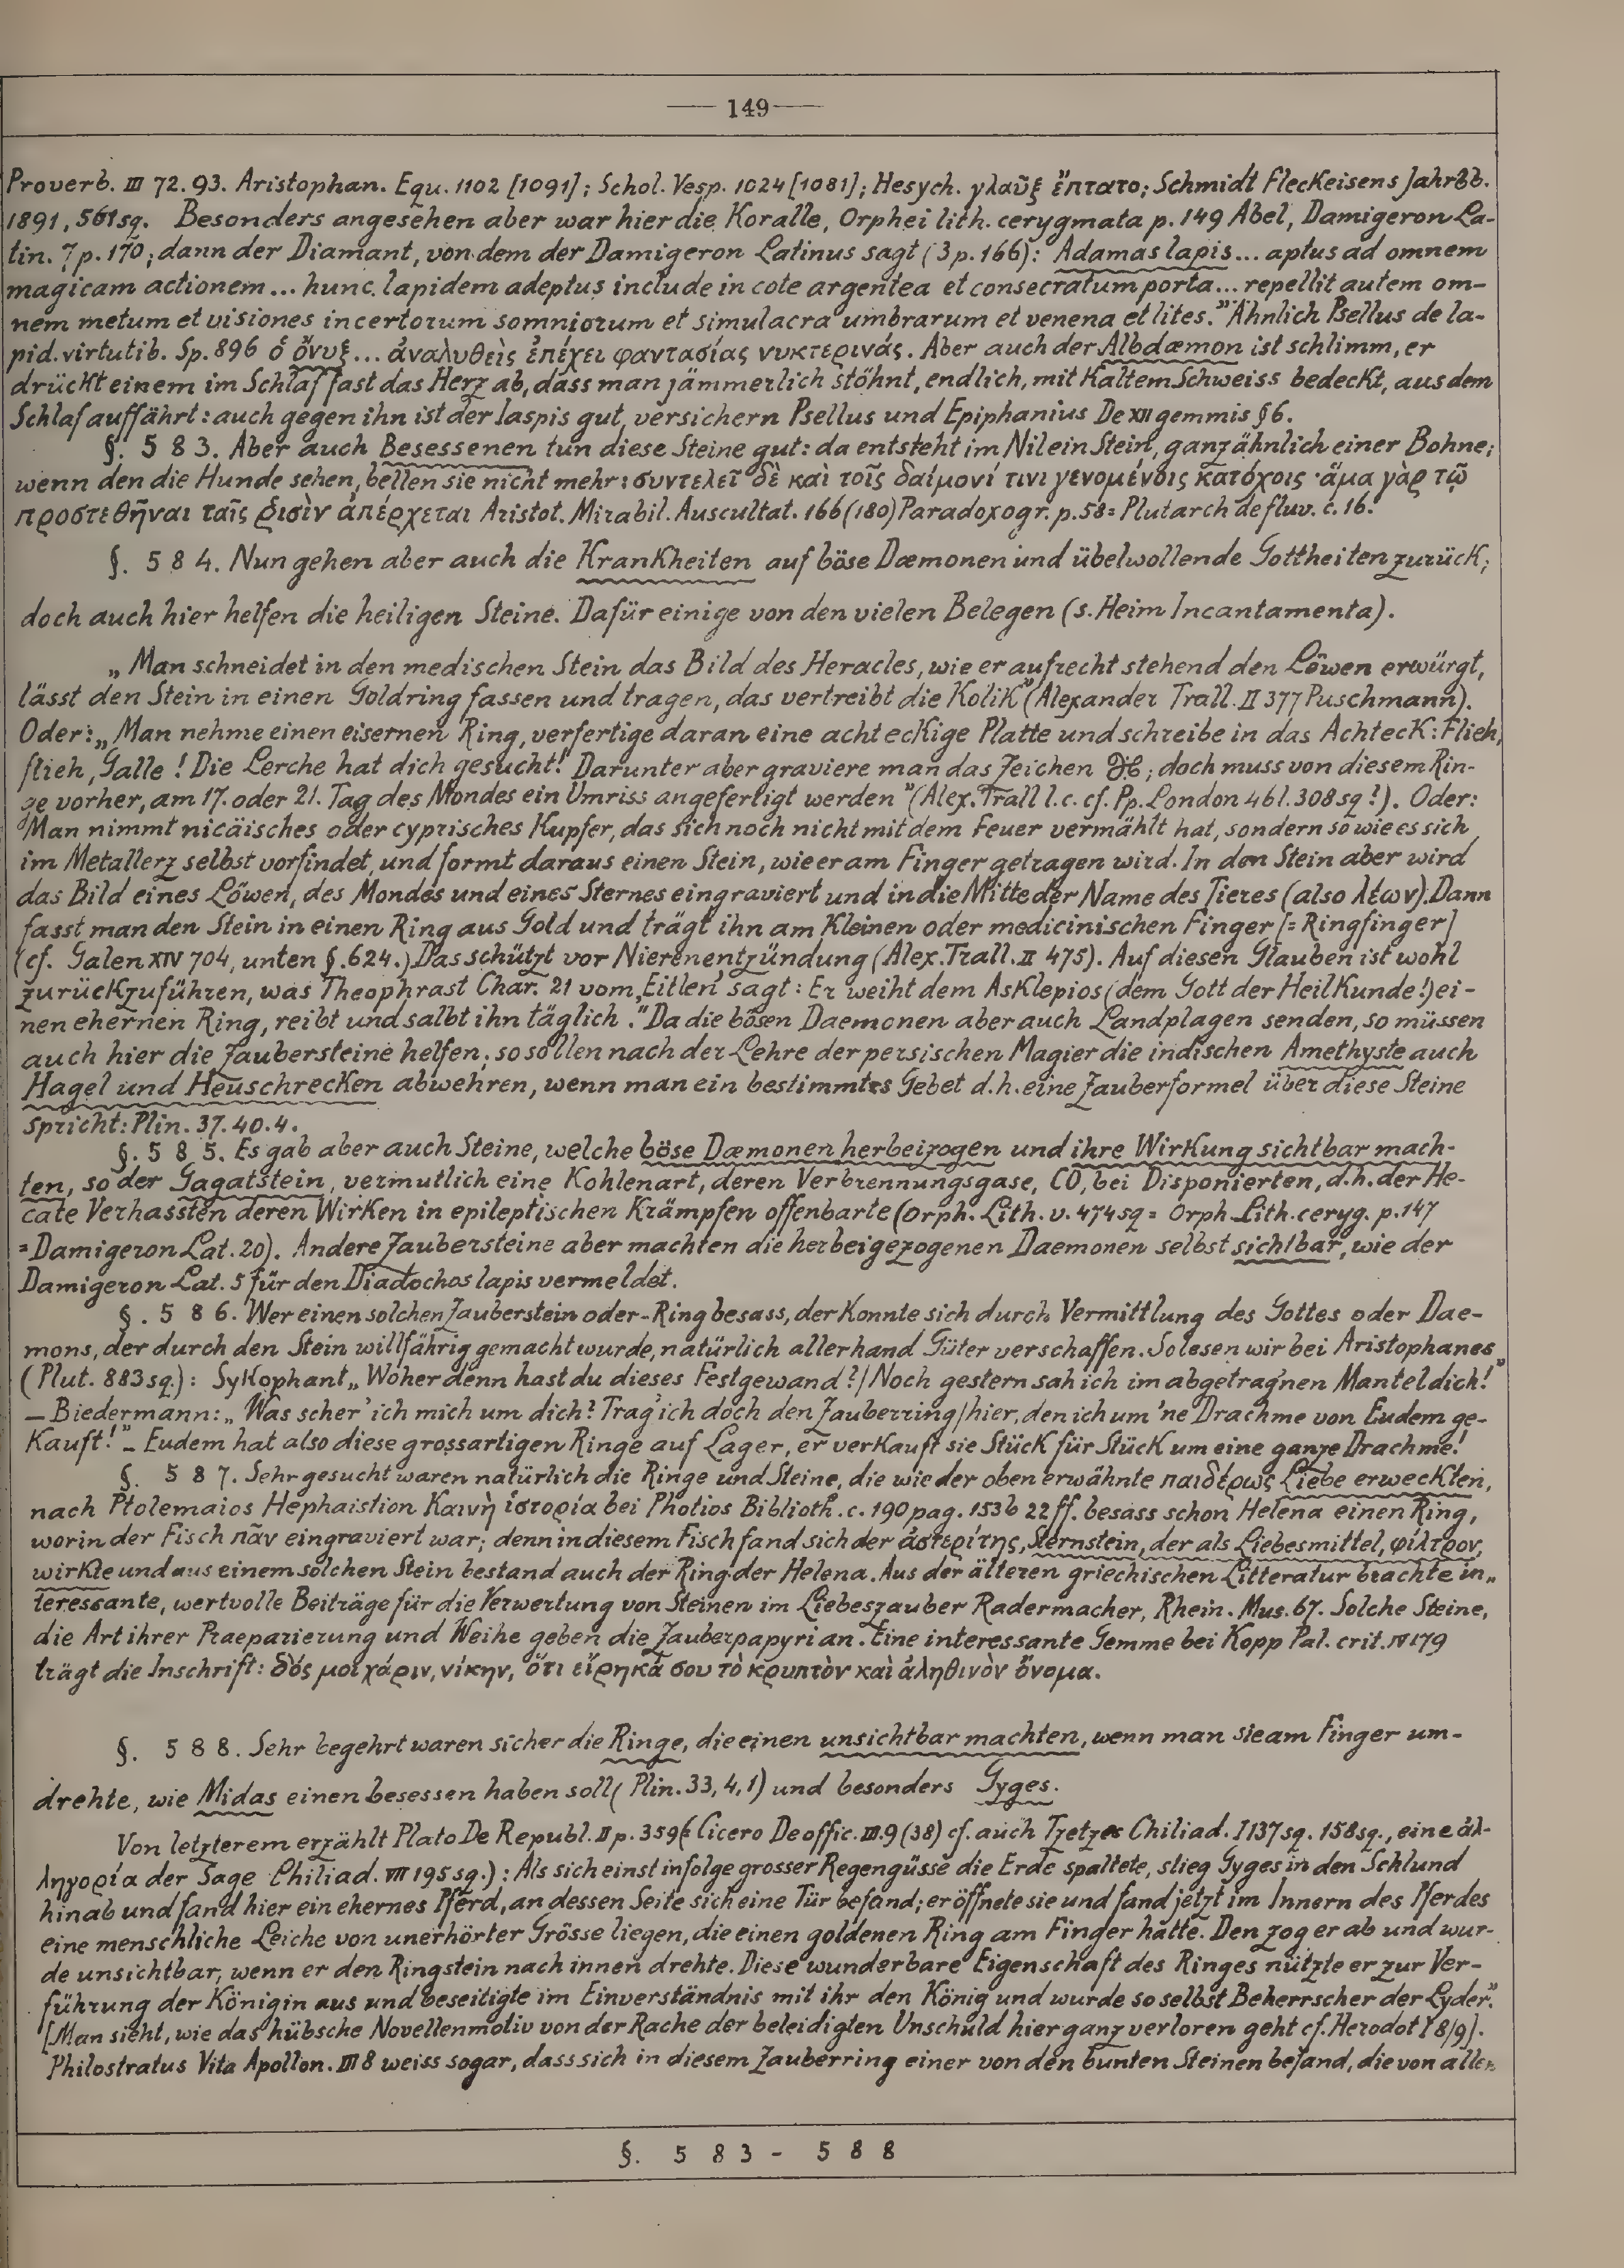 — 149 —
Proverb. III 72. 93. Aristophan. Equ. 1102 [1091]; Schol. Vesp. 1024 [1081]; Hesych. γλαῦξ ἔπτατο; Schmidt Fleckeisens Jahrbb.
1891, 561 sq. Besonders angesehen aber war hier die Koralle, Orphei lith. cerygmata p. 149 Abel, Damigeron La-
tin. 7 p. 170; dann der Diamant, von dem der Damigeron Latinus sagt (3 p. 166): Adamas lapis... aptus ad omnem
magicam actionem... hunc lapidem adeptus include in cote argentea et consecratum porta... repellit autem om-
nem metum et visiones incertorum somniorum et simulacra umbrarum et venena et lites." Ähnlich Psellus de la-
pid. virtutib. Sp. 896 ὁ ὄνυξ... ἀναλυθεὶς ἐπέχει φαντασίας νυκτερινάς. Aber auch der Albdæmon ist schlimm, er
drückt einem im Schlaf fast das Herz ab, dass man jämmerlich stöhnt, endlich, mit Kaltem Schweiss bedeckt, aus dem
Schlaf auffährt: auch gegen ihn ist der Iaspis gut, versichern Psellus und Epiphanius De XII gemmis § 6.
§. 583. Aber auch Besessenen tun diese Steine gut: da entsteht im Nil ein Stein, ganz ähnlich einer Bohne;
wenn den die Hunde sehen, bellen sie nicht mehr: συντελεῖ δὲ καὶ τοῖς δαίμονί τινι γενομένοις κατόχοις· ἅμα γὰρ τῷ
προστεθῆναι ταῖς ῥισὶν ἀπέρχεται Aristot. Mirabil. Auscultat. 166 (180) Paradoxogr. p. 58 = Plutarch de fluv. c. 16.
§. 584. Nun gehen aber auch die Krankheiten auf böse Dæmonen und übelwollende Gottheiten zurück;
doch auch hier helfen die heiligen Steine. Dafür einige von den vielen Belegen (s. Heim Incantamenta).
„Man schneidet in den medischen Stein das Bild des Heracles, wie er aufrecht stehend den Löwen erwürgt,
lässt den Stein in einen Goldring fassen und tragen, das vertreibt die Kolik" (Alexander Trall. II 377 Puschmann).
Oder: „Man nehme einen eisernen Ring, verfertige daran eine achteckige Platte und schreibe in das Achteck: Flieh,
flieh, Galle! Die Lerche hat dich gesucht! Darunter aber graviere man das Zeichen ; doch muss von diesem Rin-
ge vorher, am 17. oder 21. Tag des Mondes ein Umriss angefertigt werden" (Alex. Trall l. c. cf. Pp. London 46 l. 308 sq!). Oder:
Man nimmt nicäisches oder cyprisches Kupfer, das sich noch nicht mit dem Feuer vermählt hat, sondern so wie es sich
im Metallerz selbst vorfindet, und formt daraus einen Stein, wie er am Finger getragen wird. In den Stein aber wird
das Bild eines Löwen, des Mondes und eines Sternes eingraviert und in die Mitte der Name des Tieres (also λέων). Dann
fasst man den Stein in einen Ring aus Gold und trägt ihn am Kleinen oder medicinischen Finger [= Ringfinger]
(cf. Galen XIV 704, unten §. 624.) Das schützt vor Nierenentzündung (Alex. Trall. II 475). Auf diesen Glauben ist wohl
zurückzuführen, was Theophrast Char. 21 vom „Eitlen' sagt: Er weiht dem Asklepios (dem Gott der Heilkunde!) ei-
nen ehernen Ring, reibt und salbt ihn täglich." Da die bösen Daemonen aber auch Landplagen senden, so müssen
auch hier die Zaubersteine helfen; so sollen nach der Lehre der persischen Magier die indischen Amethyste auch
Hagel und Heuschrecken abwehren, wenn man ein bestimmtes Gebet d. h. eine Zauberformel über diese Steine
spricht: Plin. 37. 40. 4.
§. 585. Es gab aber auch Steine, welche böse Dæmonen herbeizogen und ihre Wirkung sichtbar mach-
ten, so der Gagatstein, vermutlich eine Kohlenart, deren Verbrennungsgase, CO, bei Disponierten, d. h. der He-
cate Verhassten deren Wirken in epileptischen Krämpfen offenbarte (Orph. Lith. v. 474 sq = Orph. Lith. ceryg. p. 147
= Damigeron Lat. 20). Andere Zaubersteine aber machten die herbeigezogenen Daemonen selbst sichtbar, wie der
Damigeron Lat. 5 für den Diadochos lapis vermeldet.
§. 586. Wer einen solchen Zauberstein oder -Ring besass, der konnte sich durch Vermittlung des Gottes oder Dae-
mons, der durch den Stein willfährig gemacht wurde, natürlich allerhand Güter verschaffen. So lesen wir bei Aristophanes
(Plut. 883 sq.): Sykophant „Woher denn hast du dieses Festgewand?/ Noch gestern sah ich im abgetragnen Mantel dich!"
— Biedermann: „Was scher' ich mich um dich? Trag' ich doch den Zauberring/ hier, den ich um 'ne Drachme von Eudem ge-
kauft!" – Eudem hat also diese grossartigen Ringe auf Lager, er verkauft sie Stück für Stück um eine ganze Drachme!
§. 587. Sehr gesucht waren natürlich die Ringe und Steine, die wie der oben erwähnte παιδέρως Liebe erweckten,
nach Ptolemaios Hephaistion Καινὴ ἱστορία bei Photios Biblioth. c. 190 pag. 153b 22 ff. besass schon Helena einen Ring,
worin der Fisch πᾶν eingraviert war; denn in diesem Fisch fand sich der ἀστερίτης, Sternstein, der als Liebesmittel, φίλτρον,
wirkte und aus einem solchen Stein bestand auch der Ring der Helena. Aus der älteren griechischen Litteratur brachte in„
teressante, wertvolle Beiträge für die Verwertung von Steinen im Liebeszauber Radermacher, Rhein. Mus. 67. Solche Steine,
die Art ihrer Praeparierung und Weihe geben die Zauberpapyri an. Eine interessante Gemme bei Kopp Pal. crit. IV 179
trägt die Inschrift: δός μοι χάριν, νίκην, ὅτι εἴρηκά σου τὸ κρυπτὸν καὶ ἀληθινὸν ὄνομα.
§. 588. Sehr begehrt waren sicher die Ringe, die einen unsichtbar machten, wenn man sie am Finger um-
drehte, wie Midas einen besessen haben soll (Plin. 33, 4, 1) und besonders Gyges.
Von letzterem erzählt Plato De Republ. II p. 359 (Cicero De offic. III. 9 (38) cf. auch Tzetzes Chiliad. I 137 sq. 158 sq., eine ἀλ-
ληγορία der Sage Chiliad. VII 195 sq.): Als sich einst infolge grosser Regengüsse die Erde spaltete, stieg Gyges in den Schlund
hinab und fand hier ein ehernes Pferd, an dessen Seite sich eine Tür befand; er öffnete sie und fand jetzt im Innern des Pferdes
eine menschliche Leiche von unerhörter Grösse liegen, die einen goldenen Ring am Finger hatte. Den zog er ab und wur-
de unsichtbar, wenn er den Ringstein nach innen drehte. Diese wunderbare Eigenschaft des Ringes nützte er zur Ver-
führung der Königin aus und beseitigte im Einverständnis mit ihr den König und wurde so selbst Beherrscher der Lyder."
[Man sieht, wie das hübsche Novellenmotiv von der Rache der beleidigten Unschuld hier ganz verloren geht cf. Herodot I 8/9].
Philostratus Vita Apollon. III 8 weiss sogar, dass sich in diesem Zauberring einer von den bunten Steinen befand, die von allen
§. 583 - 588